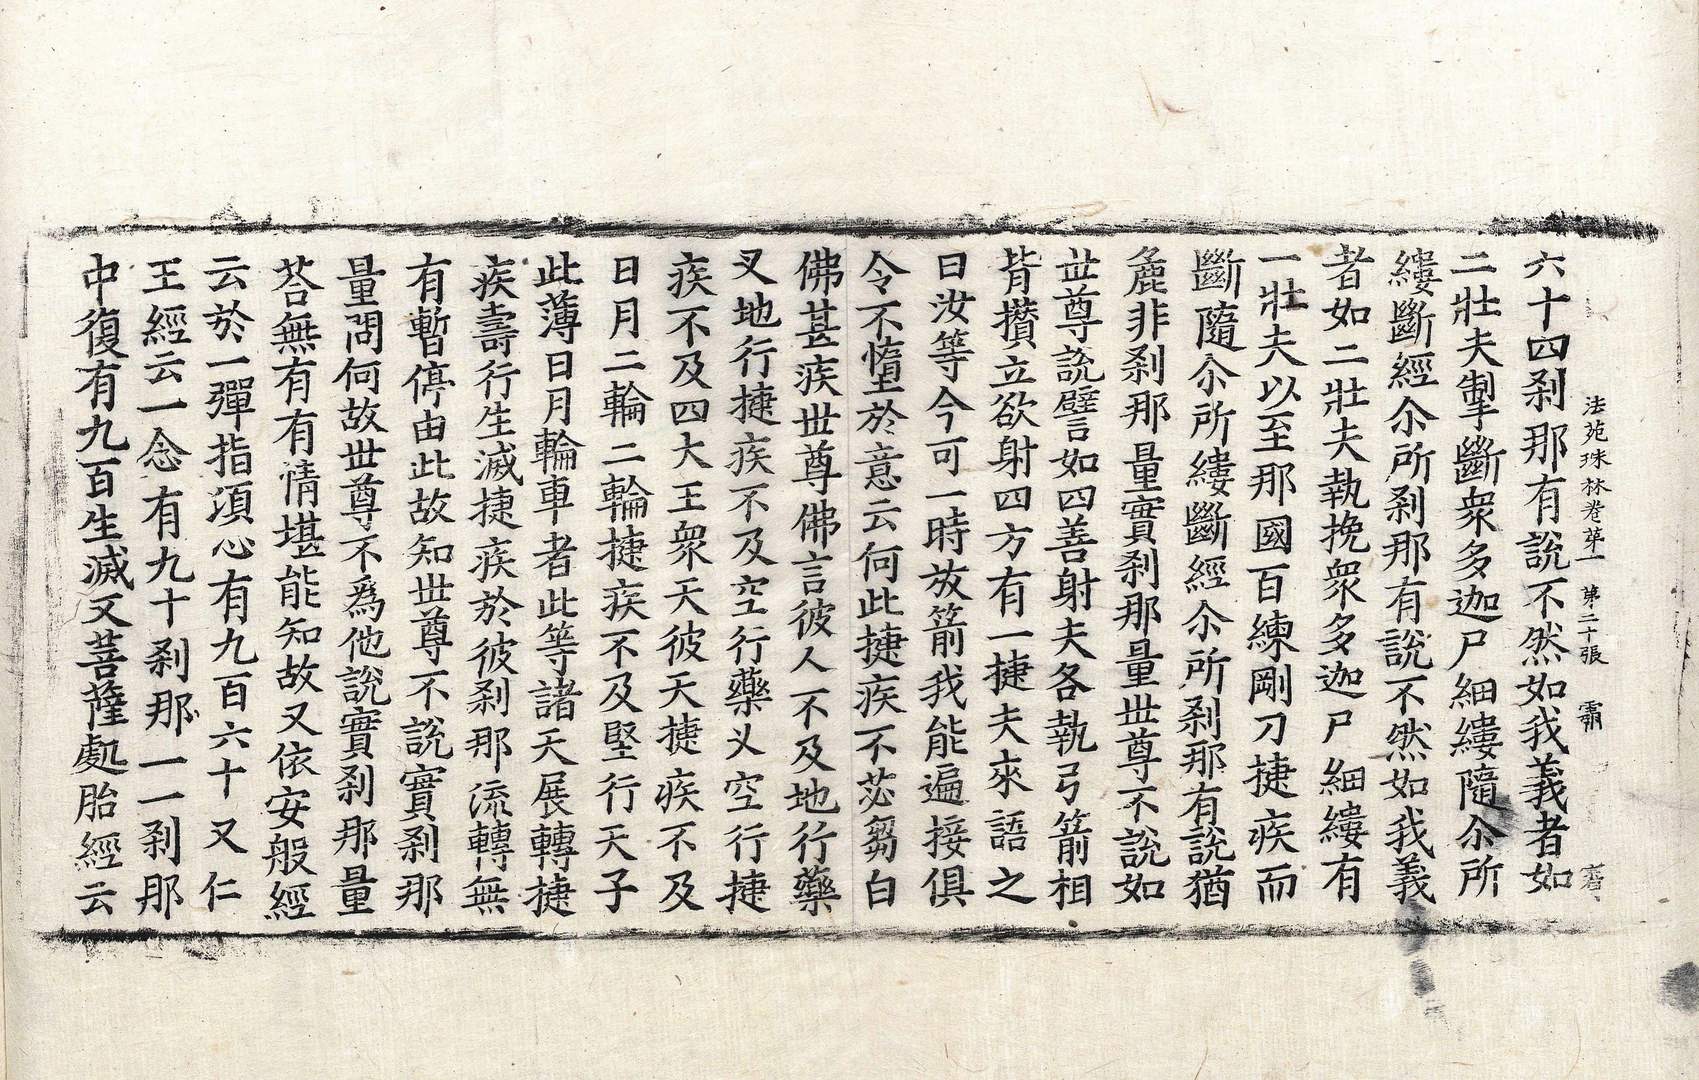 法苑珠林卷第一 第二十張 霸
六十四剎那有說不然如我義者如
二壯夫掣斷衆多迦尸細縷隨尒所
縷斷經尒所剎那有說不然如我義
者如二壯夫執挽衆多迦尸細縷有
一壯夫以至那國百練剛刀捷疾而
斷隨尒所縷斷經尒所剎那有說猶
麁非剎那量實剎那量世尊不說如
世尊說譬如四善射夫各執弓箭相
背攢立欲射四方有一捷夫來語之
曰汝等今可一時放箭我能遍接俱
令不墮於意云何此捷疾不苾芻白
佛甚疾世尊佛言彼人不及地行藥
叉地行捷疾不及空行藥叉空行捷
疾不及四大王衆天彼天捷疾不及
日月二輪二輪捷疾不及堅行天子
此薄日月輪車者此等諸天展轉捷
疾壽行生滅捷疾於彼剎那流轉無
有暫停由此故知世尊不說實剎那
量問何故世尊不爲他說實剎那量
荅無有有情堪能知故又依安般經
云於一彈指頃心有九百六十又仁
王經云一念有九十剎那一一剎那
中復有九百生滅又菩薩處胎經云